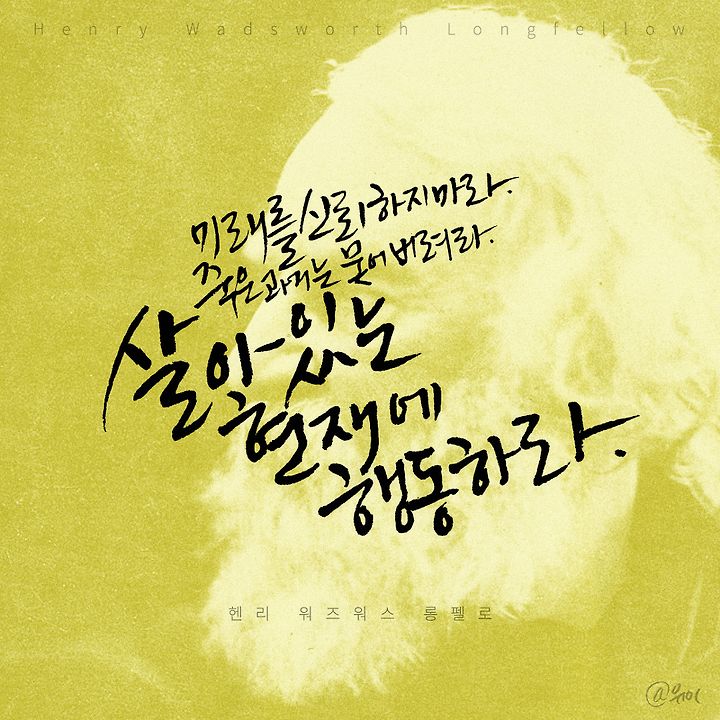 Henry Wadsworth Longfellow
미래를 신뢰하지마라.
죽은 과거는 묻어버려라.
살아있는
현재에
행동하라.
헨리 워즈워스 롱펠로